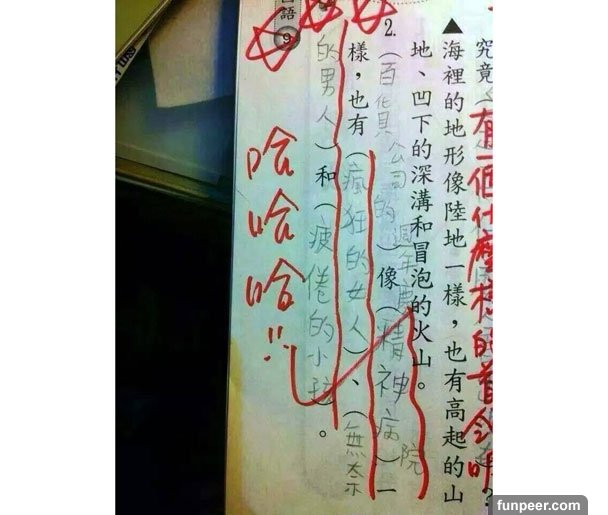 究竟
有一個什麼樣的
▲海裡的地形像陸地一樣，也有高起的山
地、凹下的深溝和冒泡的火山。
2.（百貨公司的週年慶）像（精神病院）一
樣，也有（瘋狂的女人）、（無奈
的男人）和（疲倦的小孩）。
語 9
哈哈哈!!
funpeer.com